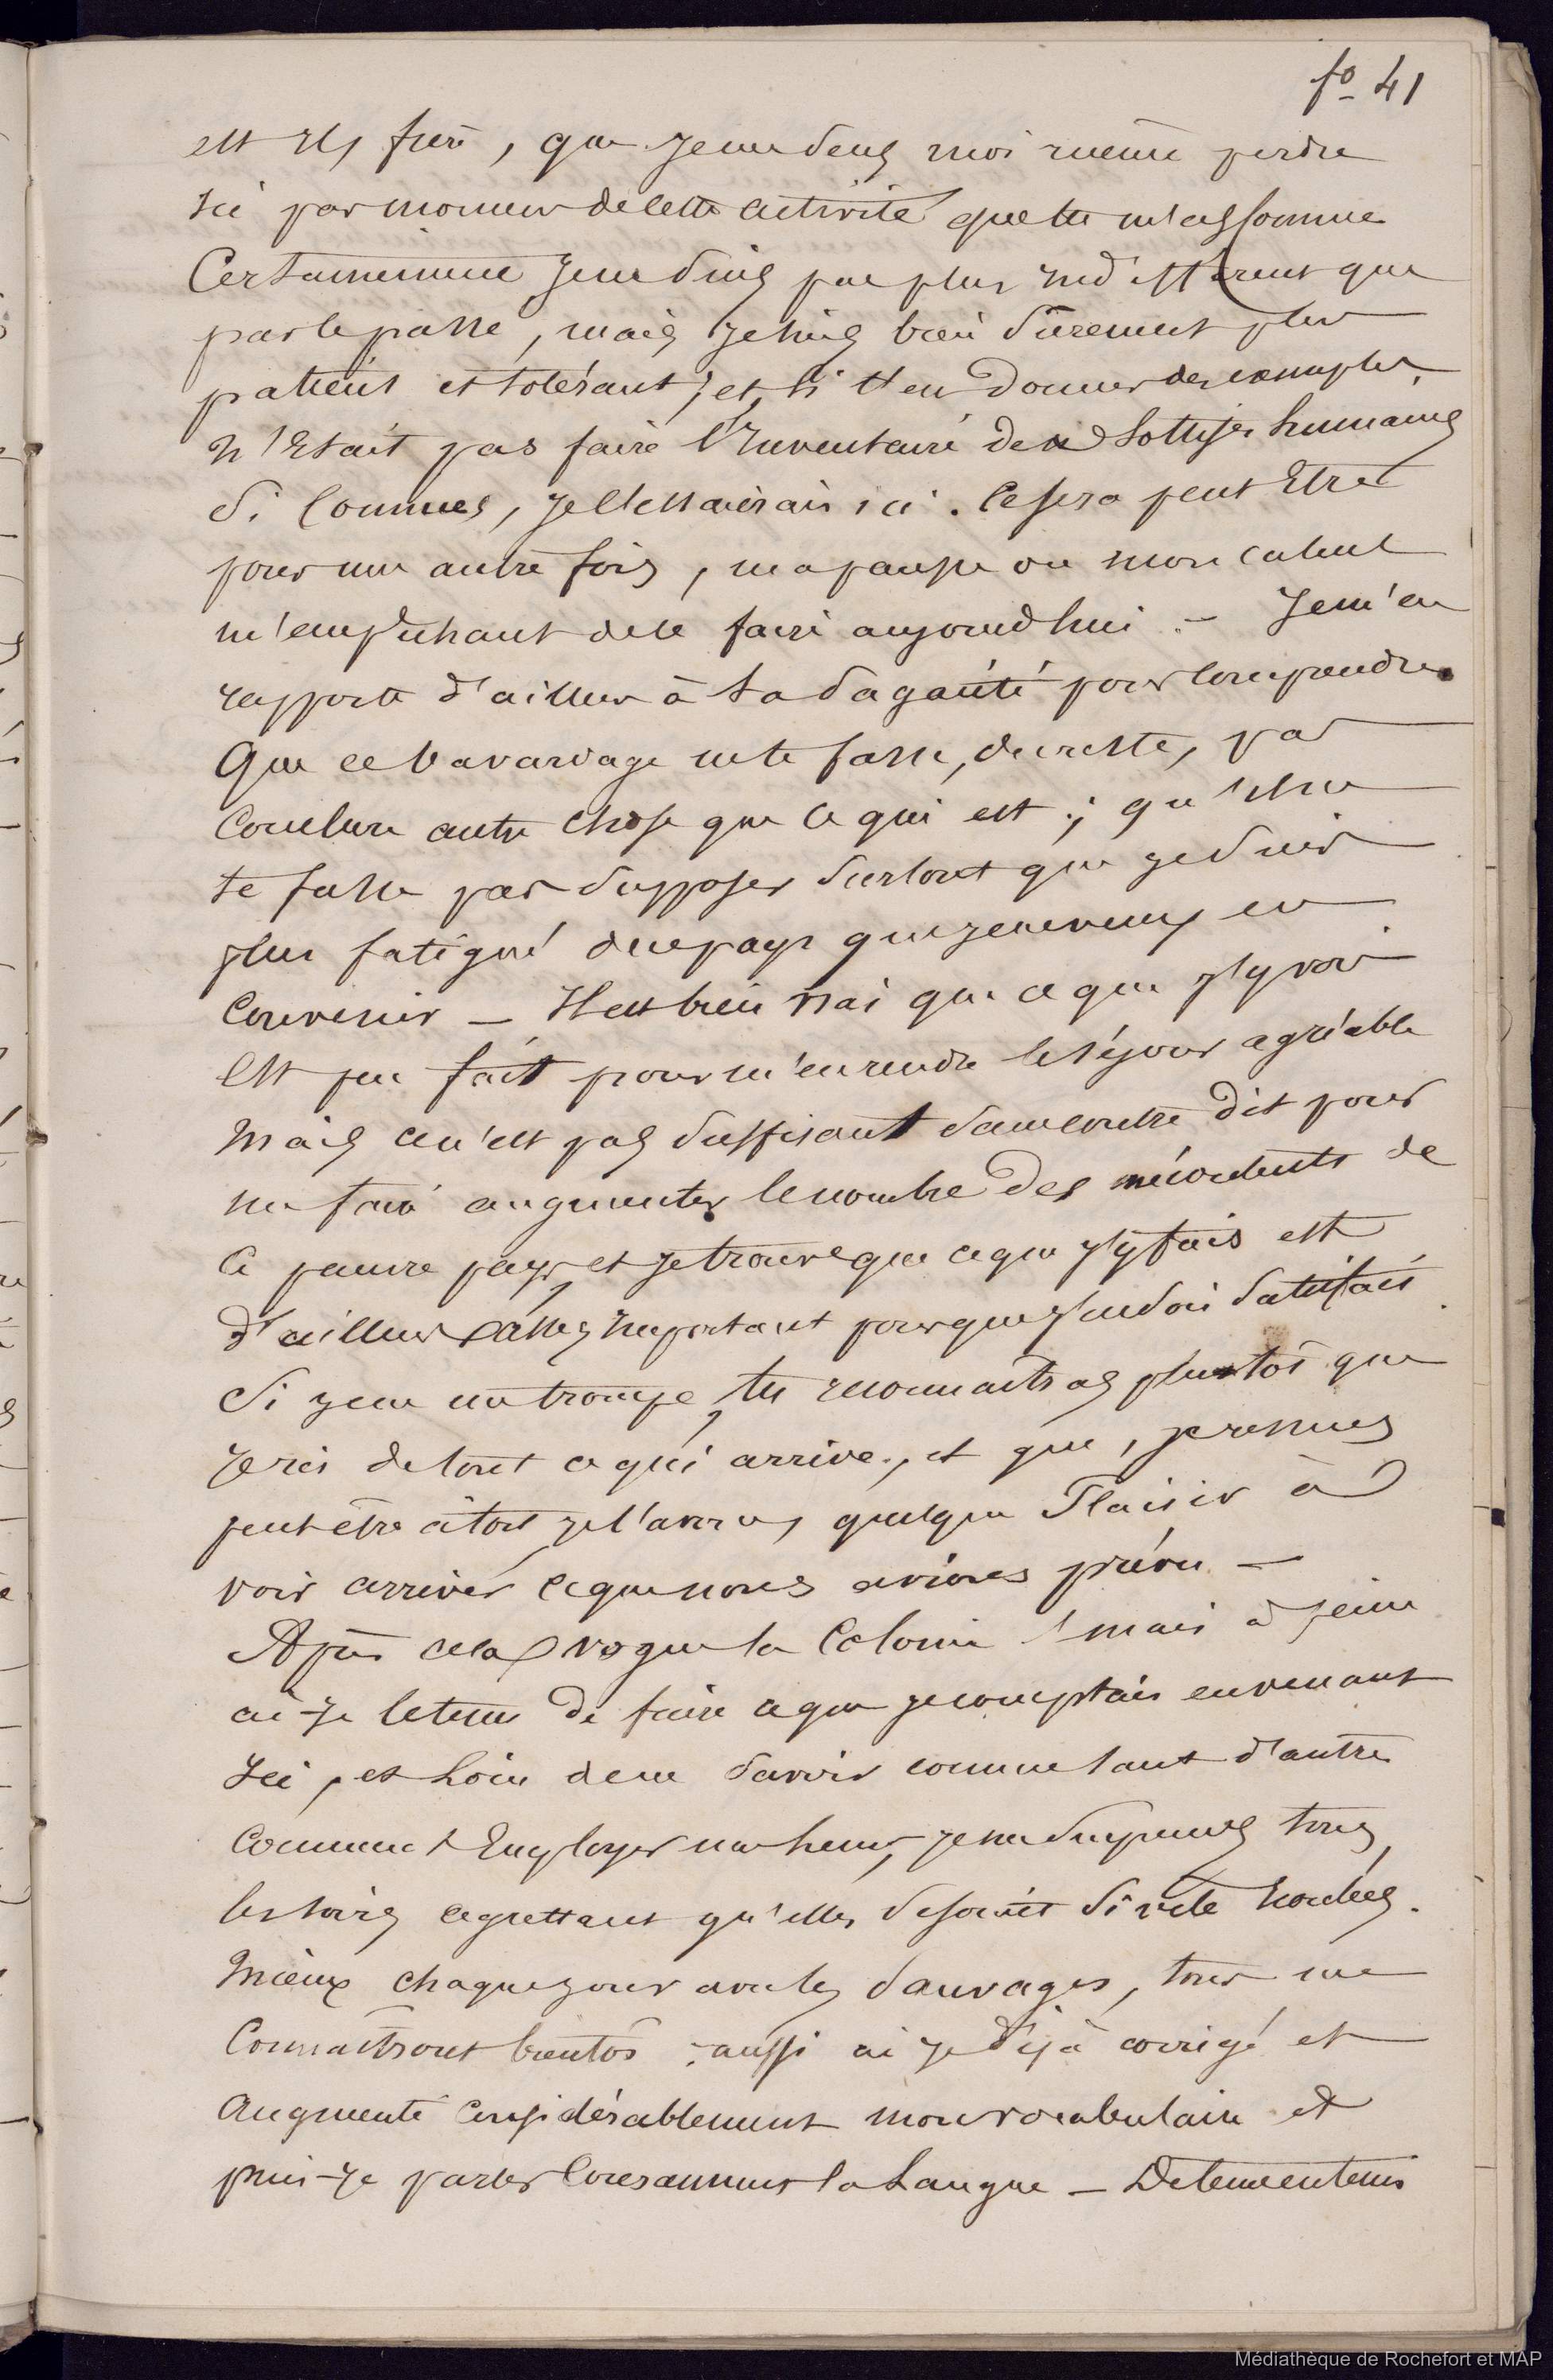 fo 41
est
ici par moment de cette activité que tu m'as connue
Certainement je ne suis pas plus indifférent que
par le passé, mais je suis bien sûrement plus
patient et tolérant; et, si t'en donner des exemples,
n'Etait pas faire l'Inventaire des sottises humaines
si connues, je l'essaierais ici. Ce sera peut Etre
pour une autre fois, ma paresse ou mon calcul
m'empêchant de le faire aujourdhui. — Je m'en
rapporte d'ailleurs à ta sagacité pour comprendre.
Que ce bavardage ne te fasse, du reste, pas
conclure autre chose que ce qui est; qu'il ne
te fasse pas supposer surtout que je suis
plus fatigué de ce pays que je ne veux en
convenir — Il est bien vrai que ce que j'y vois
est peu fait pour m'en rendre le séjour agréable
Mais ce n'est pas suffisant sans contre dit pour
me faire augmenter le nombre des mécontents de
ce pauvre pays, et je trouve que ce que j'y fais est
d'ailleurs assez Important pour que j'en sois satisfait.
Si je ne me trompe, tu reconnaitras plustôt que
je ris de tout ce qui arrive, et que, je ressens
peut être à tort je l'avoue, quelque Plaisir à
voir arriver ce que nous avions prévu —
Après cela vogue la Colonie! mais à peine
ai-je le tems de faire ce que je comptais en venant
Ici, et loin de ne savoir comme tant d'autres
comment Employer mes heures, je me surprends tous
les soirs regrettant qu'elles se soient si vite Ecoulées.
Mieux chaque jour avec les sauvages, tous me
Connaitront bientôt; aussi ai je déjà corrigé et
Augmenté considérablement mon vocabulaire et
puis-je parler couramment la Langue — De tems en tems